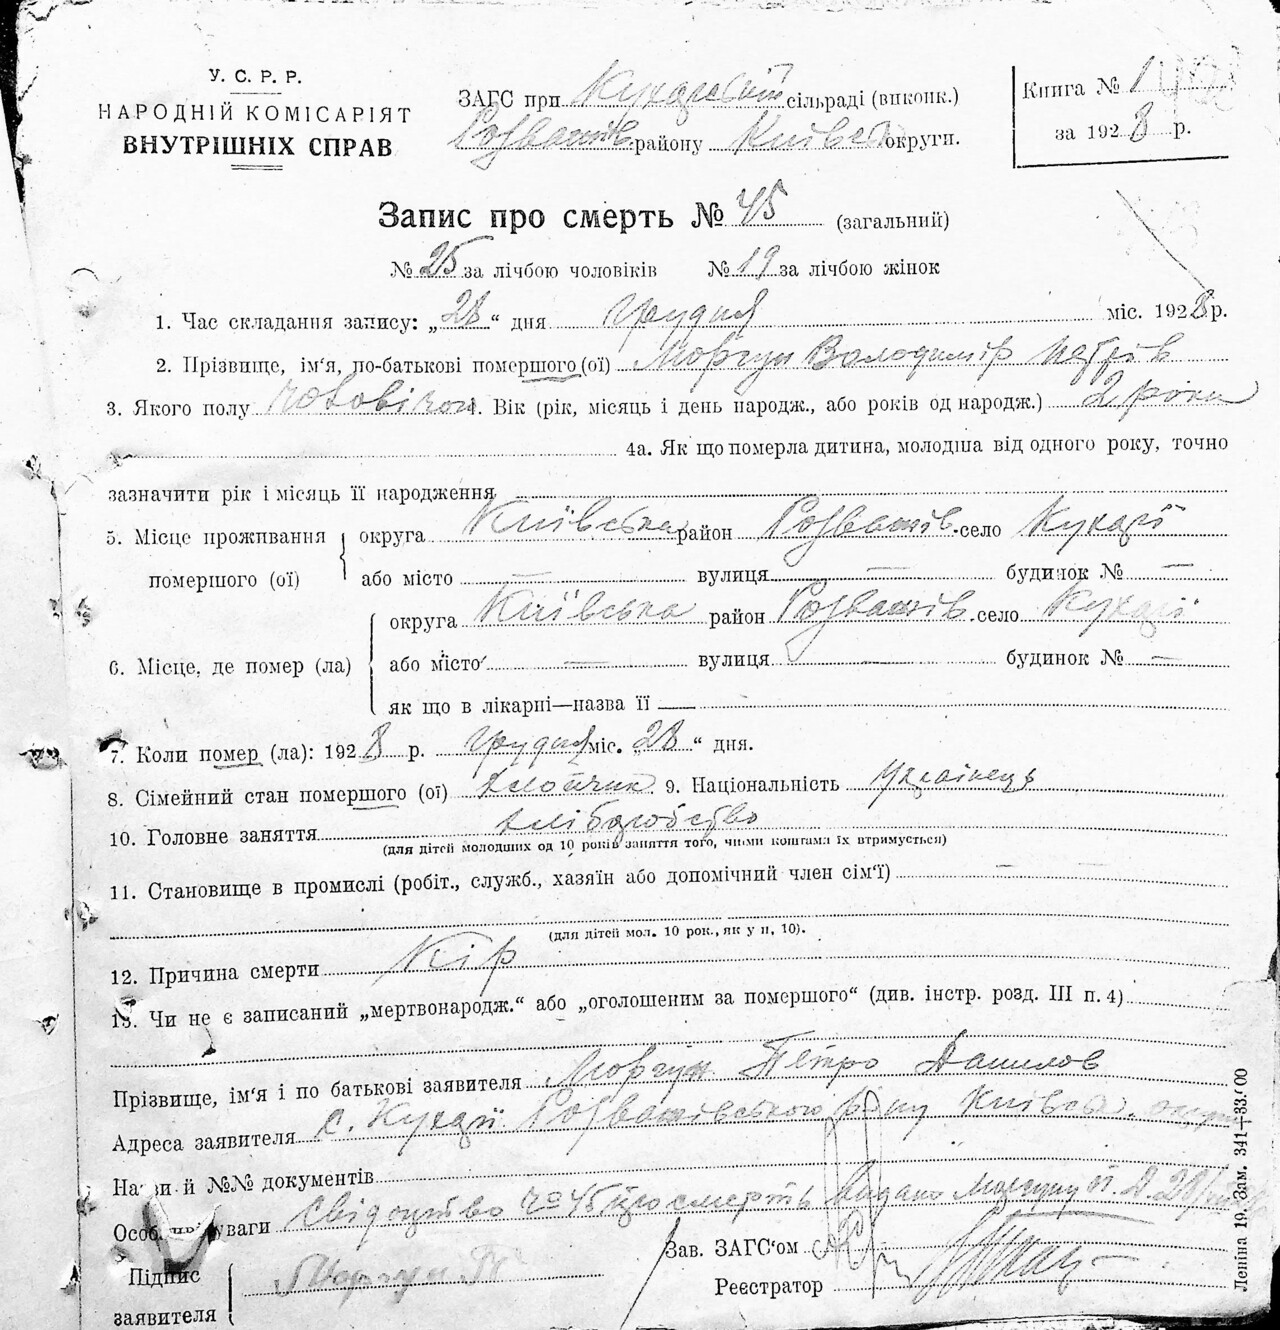 У. С. Р. Р.
НАРОДНІЙ КОМІСАРІЯТ
ВНУТРІШНІХ СПРАВ
ЗАГС при Кухарській сільраді (виконк.)
Розважів. району Київськ округи.
Книга № 1
за 1928 р.
Запис про смерть № 45 (загальний)
№ 25 за лічбою чоловіків № 19 за лічбою жінок
1. Час складання запису: „28“ дня Грудня міс. 1928 р.
2. Прізвище, ім'я, по-батькові помершого (ої) Моргун Володимір Петрів
3. Якого полу чоловічої 4. Вік (рік, місяць і день народж., або років од народж.) 2 роки
4а. Як що померла дитина, молодша від одного року, точно
зазначити рік і місяць її народження
5. Місце проживання помершого (ої) округа Київська район Розважів. село Кухарі
або місто — вулиця — будинок № —
6. Місце, де помер (ла) округа Київська район Розважів. село Кухарі
або місто — вулиця — будинок № —
як що в лікарні—назва її —
7. Коли помер (ла): 1928 р. Грудня міс. „28“ дня.
8. Сімейний стан помершого (ої) хлопчик 9. Національність Українець
10. Головне заняття хліборобство
(для дітей молодших од 10 років заняття того, чиїми коштами їх втримується)
11. Становище в промислі (робіт., служб., хазяїн або допомічний член сім'ї) — —
(для дітей мол. 10 рок., як у п. 10).
12. Причина смерти Кір
13. Чи не є записаний „мертвонародж.“ або „оголошеним за помершого“ (див. інстр. розд. III п. 4)
Прізвище, ім'я і по батькові заявителя Моргун Петро Данилов
Адреса заявителя с. Кухарі Розважівського рну Київськ. округи
Назви й №№ документів
Особливі уваги Свідоцтво № 45 про смерть видано Моргуну П. Д. 28/
Зав. ЗАГС'ом
Реєстратор
Підпис заявителя Моргун П
Леніна 19. Зам. 341—33.000